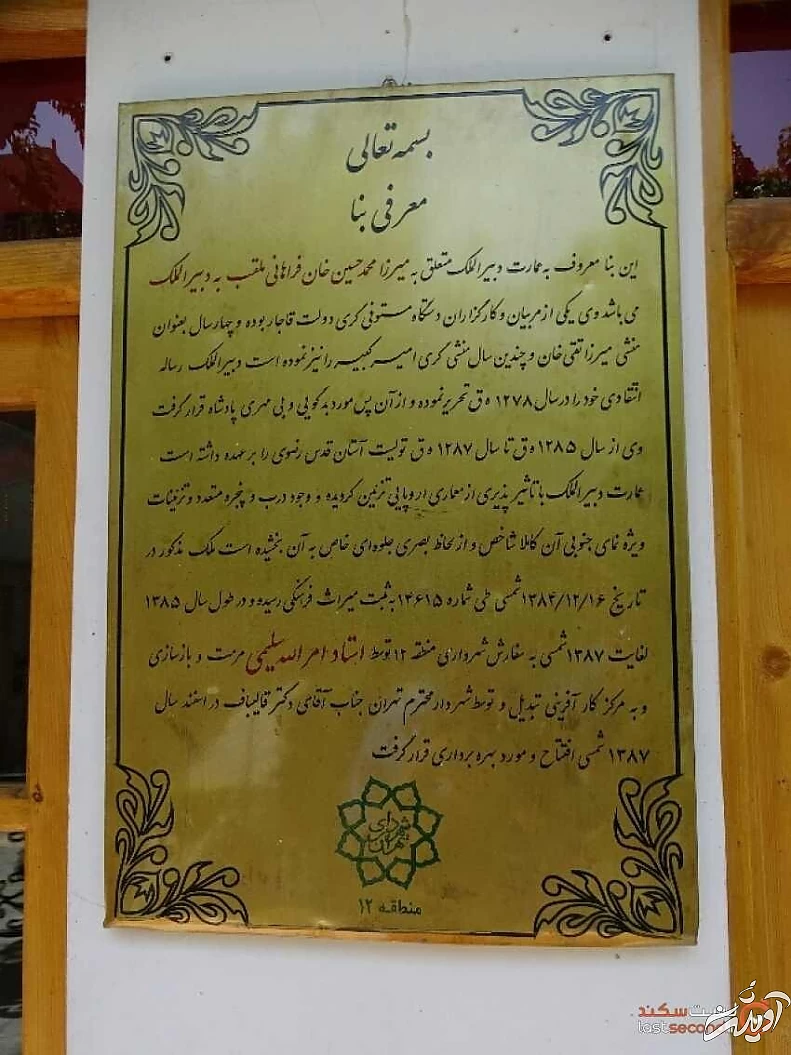 بسمه تعالی
معرفی بنا
این بنا معروف به عمارت دبیرالملک متعلق به میرزا محمد حسین خان فراهانی ملقب به دبیرالملک
می باشد وی یکی از مربیان و کارگزاران دستگاه مستوفی گری دولت قاجار بوده و چهار سال بعنوان
منشی میرزا تقی خان و چندین سال منشی گری امیر کبیر را نیز نموده است دبیرالملک رساله
انتقادی خود را در سال ۱۲۷۸ ه ق تحریر نموده و از آن پس مورد بدگویی و بی مهری پادشاه قرار گرفت
وی از سال ۱۲۸۵ ه ق تا سال ۱۲۸۷ ه ق تولیت آستان قدس رضوی را بر عهده داشته است
عمارت دبیرالملک با تاثیر پذیری از معماری اروپایی تزئین گردیده و وجود درب و پنجره متعدد و تزئینات
ویژه نمای جنوبی آن کاملا شاخص و از لحاظ بصری جلوه ای خاص به آن بخشیده است ملک مذکور در
تاریخ ۱۳۸۴/۱۲/۱۶ شمسی طی شماره ۱۴۶۱۵ به ثبت میراث فرهنگی رسیده و در طول سال ۱۳۸۵
لغایت ۱۳۸۷ شمسی به سفارش شهرداری منطقه ۱۲ توسط استاد امرالله سلیمی مرمت و بازسازی
و به مرکز کار آفرینی تبدیل و توسط شهردار محترم تهران جناب آقای دکتر قالیباف در اسفند سال
۱۳۸۷ شمسی افتتاح و مورد بهره برداری قرار گرفت
شهرداری تهران
منطقه ۱۲
لست سکند
lastsecond